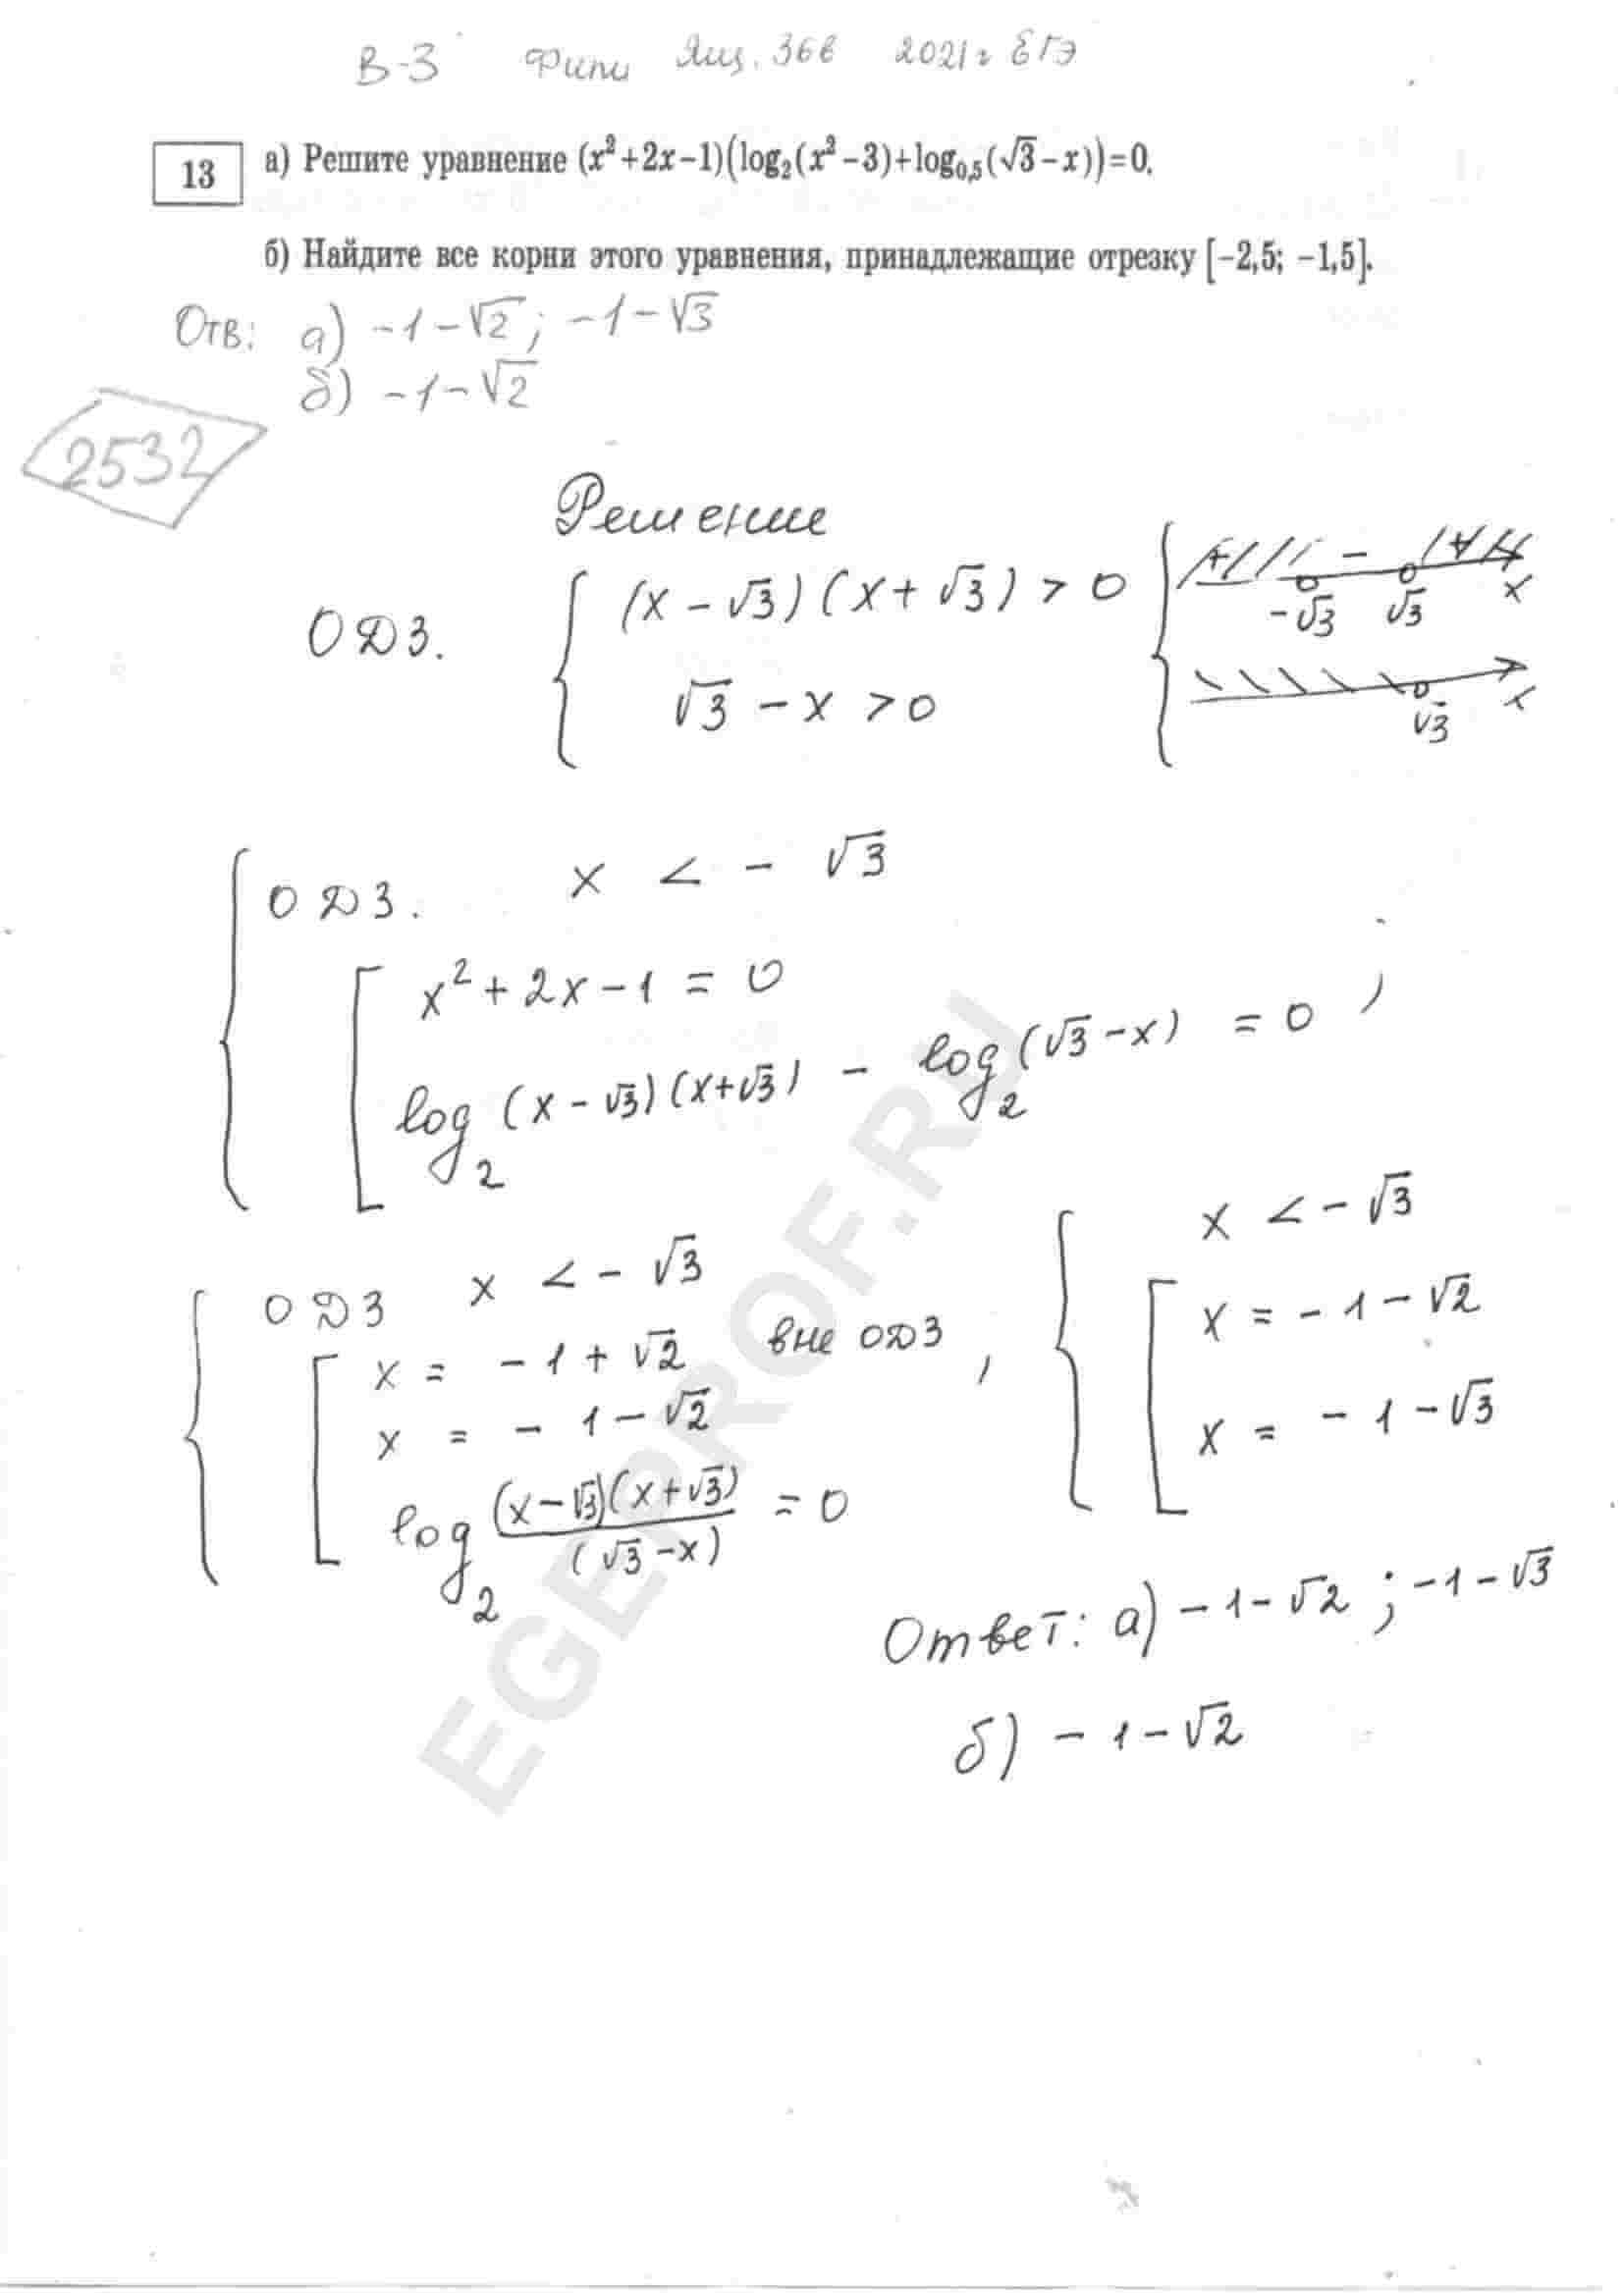 В-3 Фипи Ящ. 36в 2021г ЕГЭ
13 а) Решите уравнение (x²+2x−1)(log₂(x²−3)+log₀,₅(√3−x))=0.
б) Найдите все корни этого уравнения, принадлежащие отрезку [−2,5; −1,5].
Отв: а) −1−√2; −1−√3
б) −1−√2
2532
Решение
ОДЗ. { (x−√3)(x+√3) > 0 { + − + −√3 √3 x
√3 − x > 0 √3 x
{ ОДЗ. x < −√3
[ x²+2x−1 = 0
log₂(x−√3)(x+√3) − log₂(√3−x) = 0 ,
{ ОДЗ x < −√3
[ x = −1+√2 вне ОДЗ ,
x = −1−√2
log₂ (x−√3)(x+√3)/(√3−x) = 0
{ x < −√3
[ x = −1−√2
x = −1−√3
Ответ: а) −1−√2 ; −1−√3
б) −1−√2
EGEPROF.RU